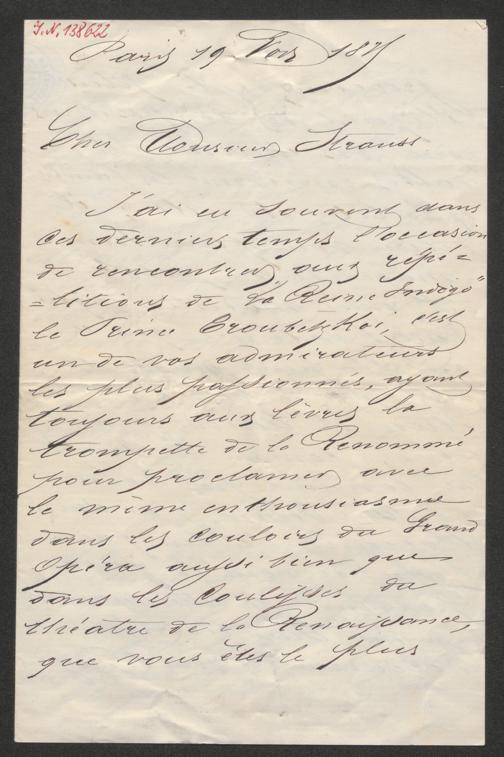 I.N. 138622
Paris 19 1875
Cher Monsieur Strauss
J'ai eu souvent dans
ces derniers temps l'occasion
de rencontrer aux répé=
=titions de "la Reine Indigo"
le Prince Troubetzkoi, c'est
un de vos admirateurs
les plus passionnés, ayant
toujours aux lèvres la
trompette de la Renommé
pour proclamer avec
le même enthousiasme
dans les couloirs du Grand
Opéra aussi bien que
dans les coulisses du
théatre de la Renaissance,
que vous êtes le plus